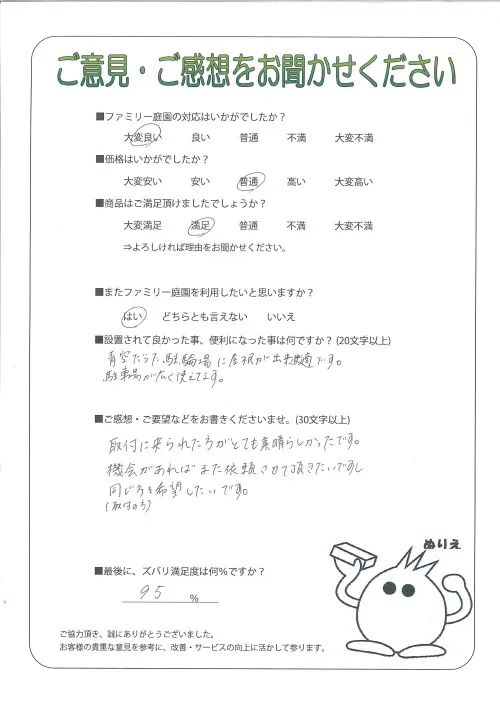 ご意見・ご感想をお聞かせください
■ファミリー庭園の対応はいかがでしたか？
大変良い 良い 普通 不満 大変不満
■価格はいかがでしたか？
大変安い 安い 普通 高い 大変高い
■商品はご満足頂けましたでしょうか？
大変満足 満足 普通 不満 大変不満
⇒よろしければ理由をお聞かせください。
■またファミリー庭園を利用したいと思いますか？
はい どちらとも言えない いいえ
■設置されて良かった事、便利になった事は何ですか？(20文字以上)
青空だった駐輪場に屋根が出来快適です。
駐車場が広く使えてます。
■ご感想・ご要望などをお書きくださいませ。(30文字以上)
取付に来られた方がとても素晴らしかったです。
機会があればまた依頼させて頂きたいですし
同じ方を希望したいです。
(取付の方)
ぬりえ
■最後に、ズバリ満足度は何%ですか？
95 %
ご協力頂き、誠にありがとうございました。
お客様の貴重な意見を参考に、改善・サービスの向上に活かして参ります。